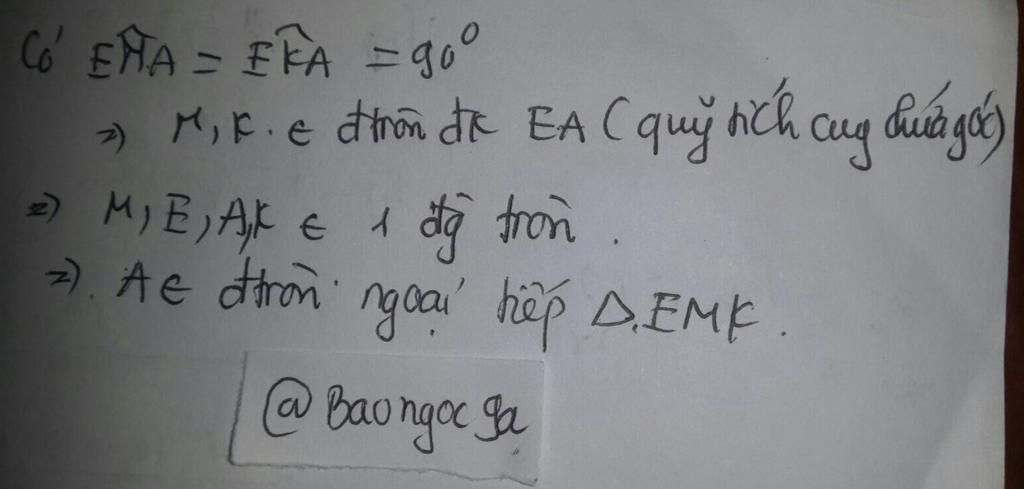 Có EM̂A = EK̂A = 90⁰
=) M, K. ∈ đtròn đk EA (quỹ tích cug chứa góc)
=) M, E, A, K ∈ 1 đg tròn.
=). A ∈ đtròn ngoại tiếp Δ.EMK.
@Baongoc ga